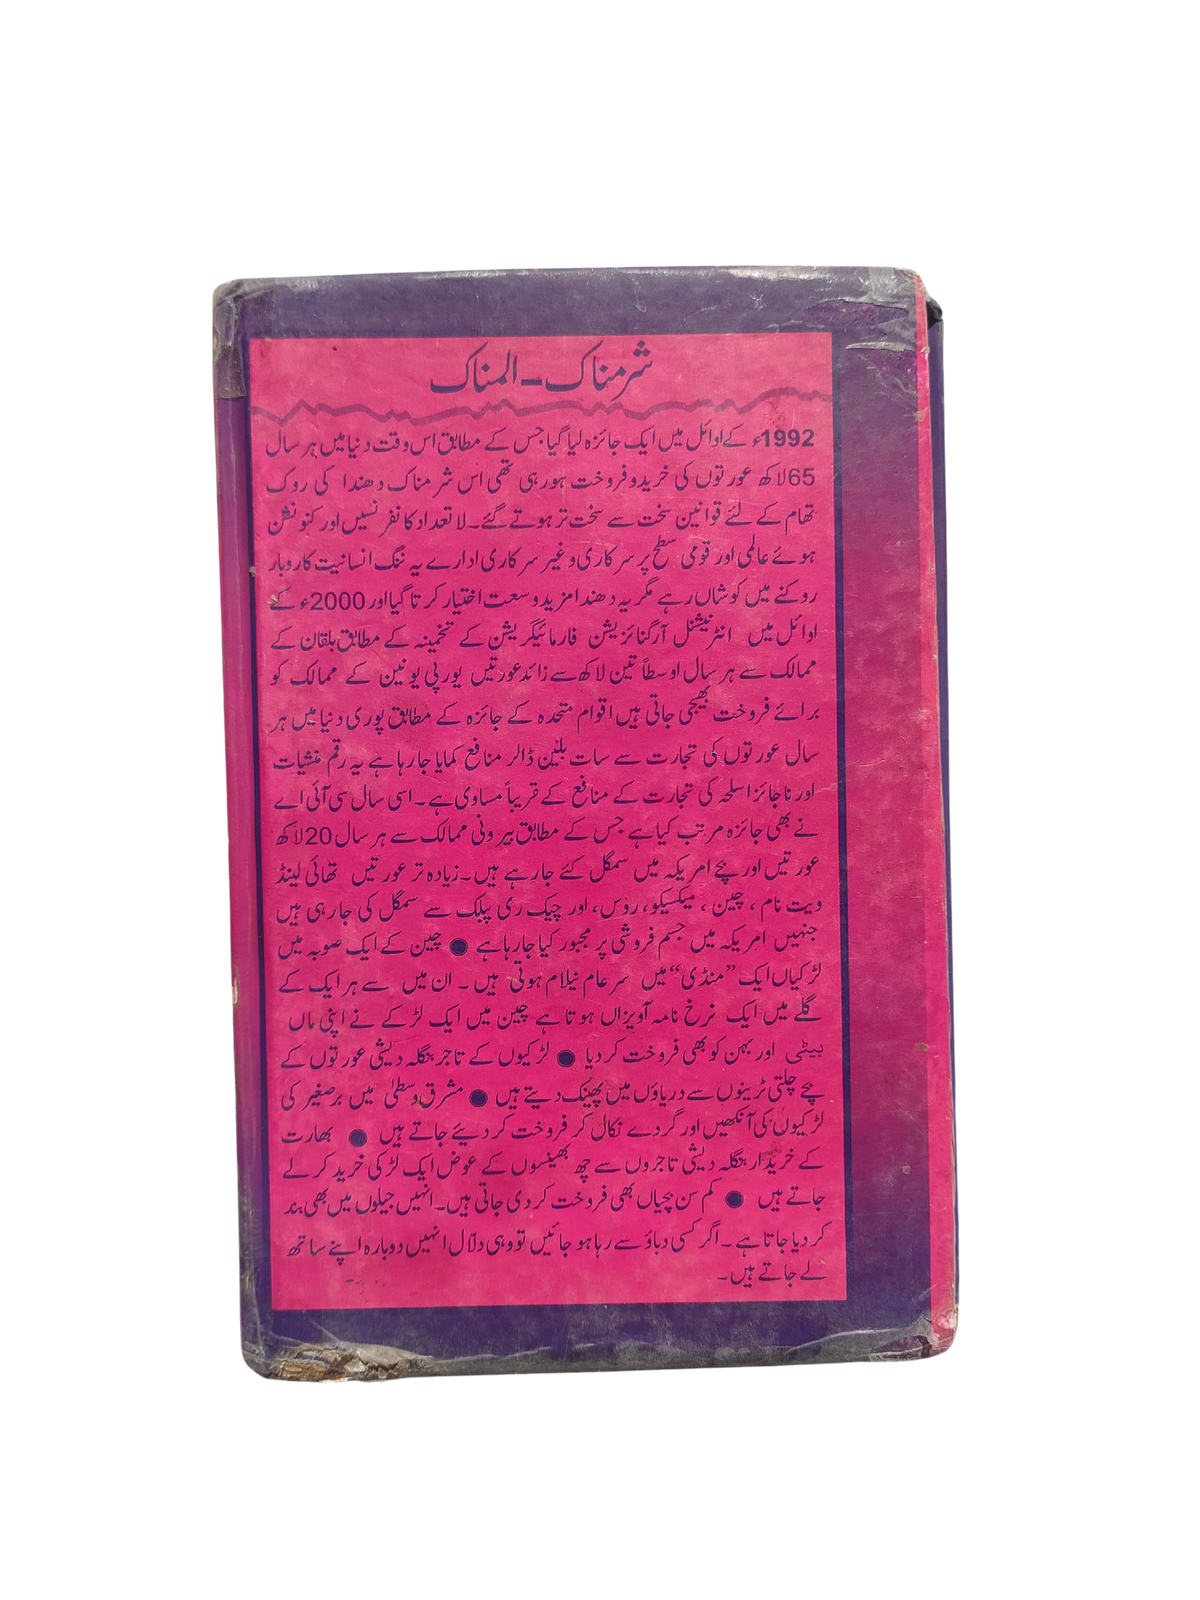 شرمناک - المناک
1992ء کے اوائل میں ایک جائزہ لیا گیا جس کے مطابق اس وقت دنیا میں ہر سال
65 لاکھ عورتوں کی خرید و فروخت ہو رہی تھی اس شرمناک دھندا کی روک
تھام کے لئے قوانین سخت سے سخت تر ہوتے گئے۔ لاتعداد کانفرنسیں اور کنونشن
ہوئے عالمی اور قومی سطح پر سرکاری و غیر سرکاری ادارے یہ ننگ انسانیت کاروبار
روکنے میں کوشاں رہے مگر یہ دھندا مزید وسعت اختیار کرتا گیا اور 2000ء کے
اوائل میں انٹرنیشنل آرگنائزیشن فار مائیگریشن کے تخمینہ کے مطابق بلقان کے
ممالک سے ہر سال اوسطاً تین لاکھ سے زائد عورتیں یورپی یونین کے ممالک کو
برائے فروخت بھیجی جاتی ہیں اقوام متحدہ کے جائزہ کے مطابق پوری دنیا میں ہر
سال عورتوں کی تجارت سے سات بلین ڈالر منافع کمایا جا رہا ہے یہ رقم منشیات
اور ناجائز اسلحہ کی تجارت کے منافع کے قریباً مساوی ہے۔ اسی سال سی آئی اے
نے بھی جائزہ مرتب کیا ہے جس کے مطابق بیرونی ممالک سے ہر سال 20 لاکھ
عورتیں اور بچے امریکہ میں سمگل کئے جا رہے ہیں۔ زیادہ تر عورتیں تھائی لینڈ
ویت نام ، چین ، میکسیکو، روس، اور چیک ری پبلک سے سمگل کی جا رہی ہیں
جنہیں امریکہ میں جسم فروشی پر مجبور کیا جا رہا ہے ● چین کے ایک صوبہ میں
لڑکیاں ایک ”منڈی“ میں سر عام نیلام ہوتی ہیں ۔ ان میں سے ہر ایک کے
گلے میں ایک نرخ نامہ آویزاں ہوتا ہے چین میں ایک لڑکے نے اپنی ماں
بیٹی اور بہن کو بھی فروخت کر دیا ● لڑکیوں کے تاجر بنگلہ دیشی عورتوں کے
بچے چلتی ٹرینوں سے دریاؤں میں پھینک دیتے ہیں ● مشرق وسطیٰ میں برصغیر کی
لڑکیوں کی آنکھیں اور گردے نکال کر فروخت کر دیئے جاتے ہیں ● بھارت
کے خریدار بنگلہ دیشی تاجروں سے چھ بھینسوں کے عوض ایک لڑکی خرید کر لے
جاتے ہیں ● کم سن بچیاں بھی فروخت کر دی جاتی ہیں۔ انہیں جیلوں میں بھی بند
کر دیا جاتا ہے ۔ اگر کسی دباؤ سے رہا ہو جائیں تو وہی دلّال انہیں دوبارہ اپنے ساتھ
لے جاتے ہیں۔